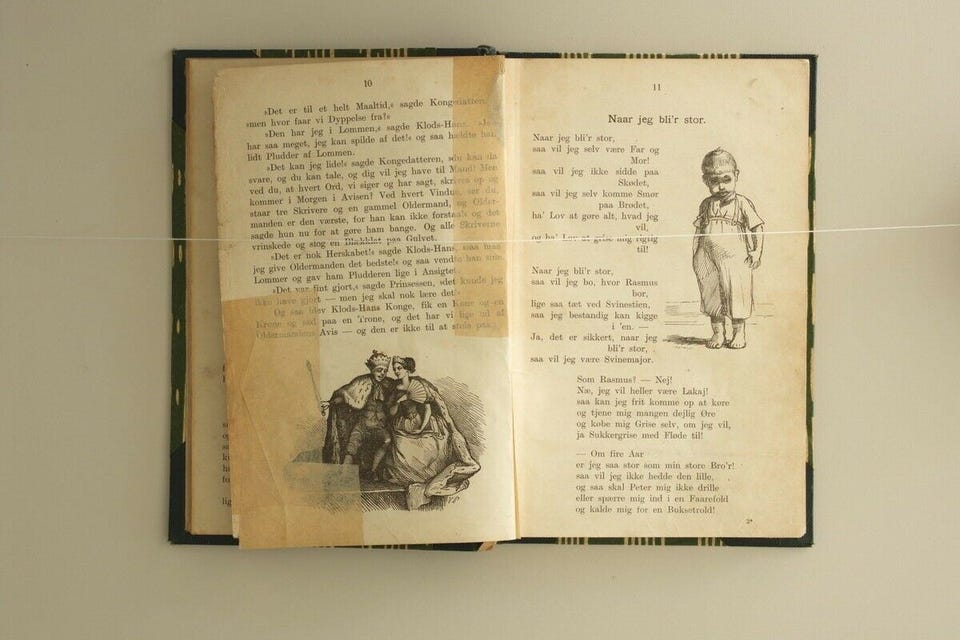 10
»Det er til et helt Maaltid,« sagde Kongedatteren,
»men hvor faar vi Dyppelse fra!«
»Den har jeg i Lommen,« sagde Klods-Hans. »Jeg
har saa meget, jeg kan spilde af det!« og saa hældte han
lidt Pludder af Lommen.
»Det kan jeg lide!« sagde Kongedatteren, »du kan da
svare, og du kan tale, og dig vil jeg have til Mand! Men
ved du, at hvert Ord, vi siger og har sagt, skrives op og
kommer i Morgen i Avisen? Ved hvert Vindue, ser du,
staar tre Skrivere og en gammel Oldermand, og Older-
manden er den værste, for han kan ikke forstaa!« og det
sagde hun nu for at gøre ham bange. Og alle Skriverne
vrinskede og slog en Blækklat paa Gulvet.
»Det er nok Herskabet!« sagde Klods-Hans, »saa maa
jeg give Oldermanden det bedste!« og saa vendte han sine
Lommer og gav ham Pludderen lige i Ansigtet.
»Det var fint gjort,« sagde Prinsessen, »det kunde jeg
ikke have gjort — men jeg skal nok lære det!«
Og saa blev Klods-Hans Konge, fik en Kone og en
Krone og sad paa en Trone, og det har vi lige ud af
Oldermandens Avis — og den er ikke til at stole paa.
11
Naar jeg bli'r stor.
Naar jeg bli'r stor,
saa vil jeg selv være Far og
Mor!
saa vil jeg ikke sidde paa
Skødet,
saa vil jeg selv komme Smør
paa Brødet,
ha' Lov at gøre alt, hvad jeg
vil,
og ha' Lov at grise mig rigtig
til!
Naar jeg bli'r stor,
saa vil jeg bo, hvor Rasmus
bor,
lige saa tæt ved Svinestien,
saa jeg bestandig kan kigge
i 'en. —
Ja, det er sikkert, naar jeg
bli'r stor,
saa vil jeg være Svinemajor.
Som Rasmus? — Nej!
Næ, jeg vil heller være Lakaj!
saa kan jeg frit komme op at køre
og tjene mig mangen dejlig Øre
og købe mig Grise selv, om jeg vil,
ja Sukkergrise med Fløde til!
— Om fire Aar
er jeg saa stor som min store Bro'r!
saa vil jeg ikke hedde den lille,
og saa skal Peter mig ikke drille
eller spærre mig ind i en Faarefold
og kalde mig for en Buksetrold!
2*